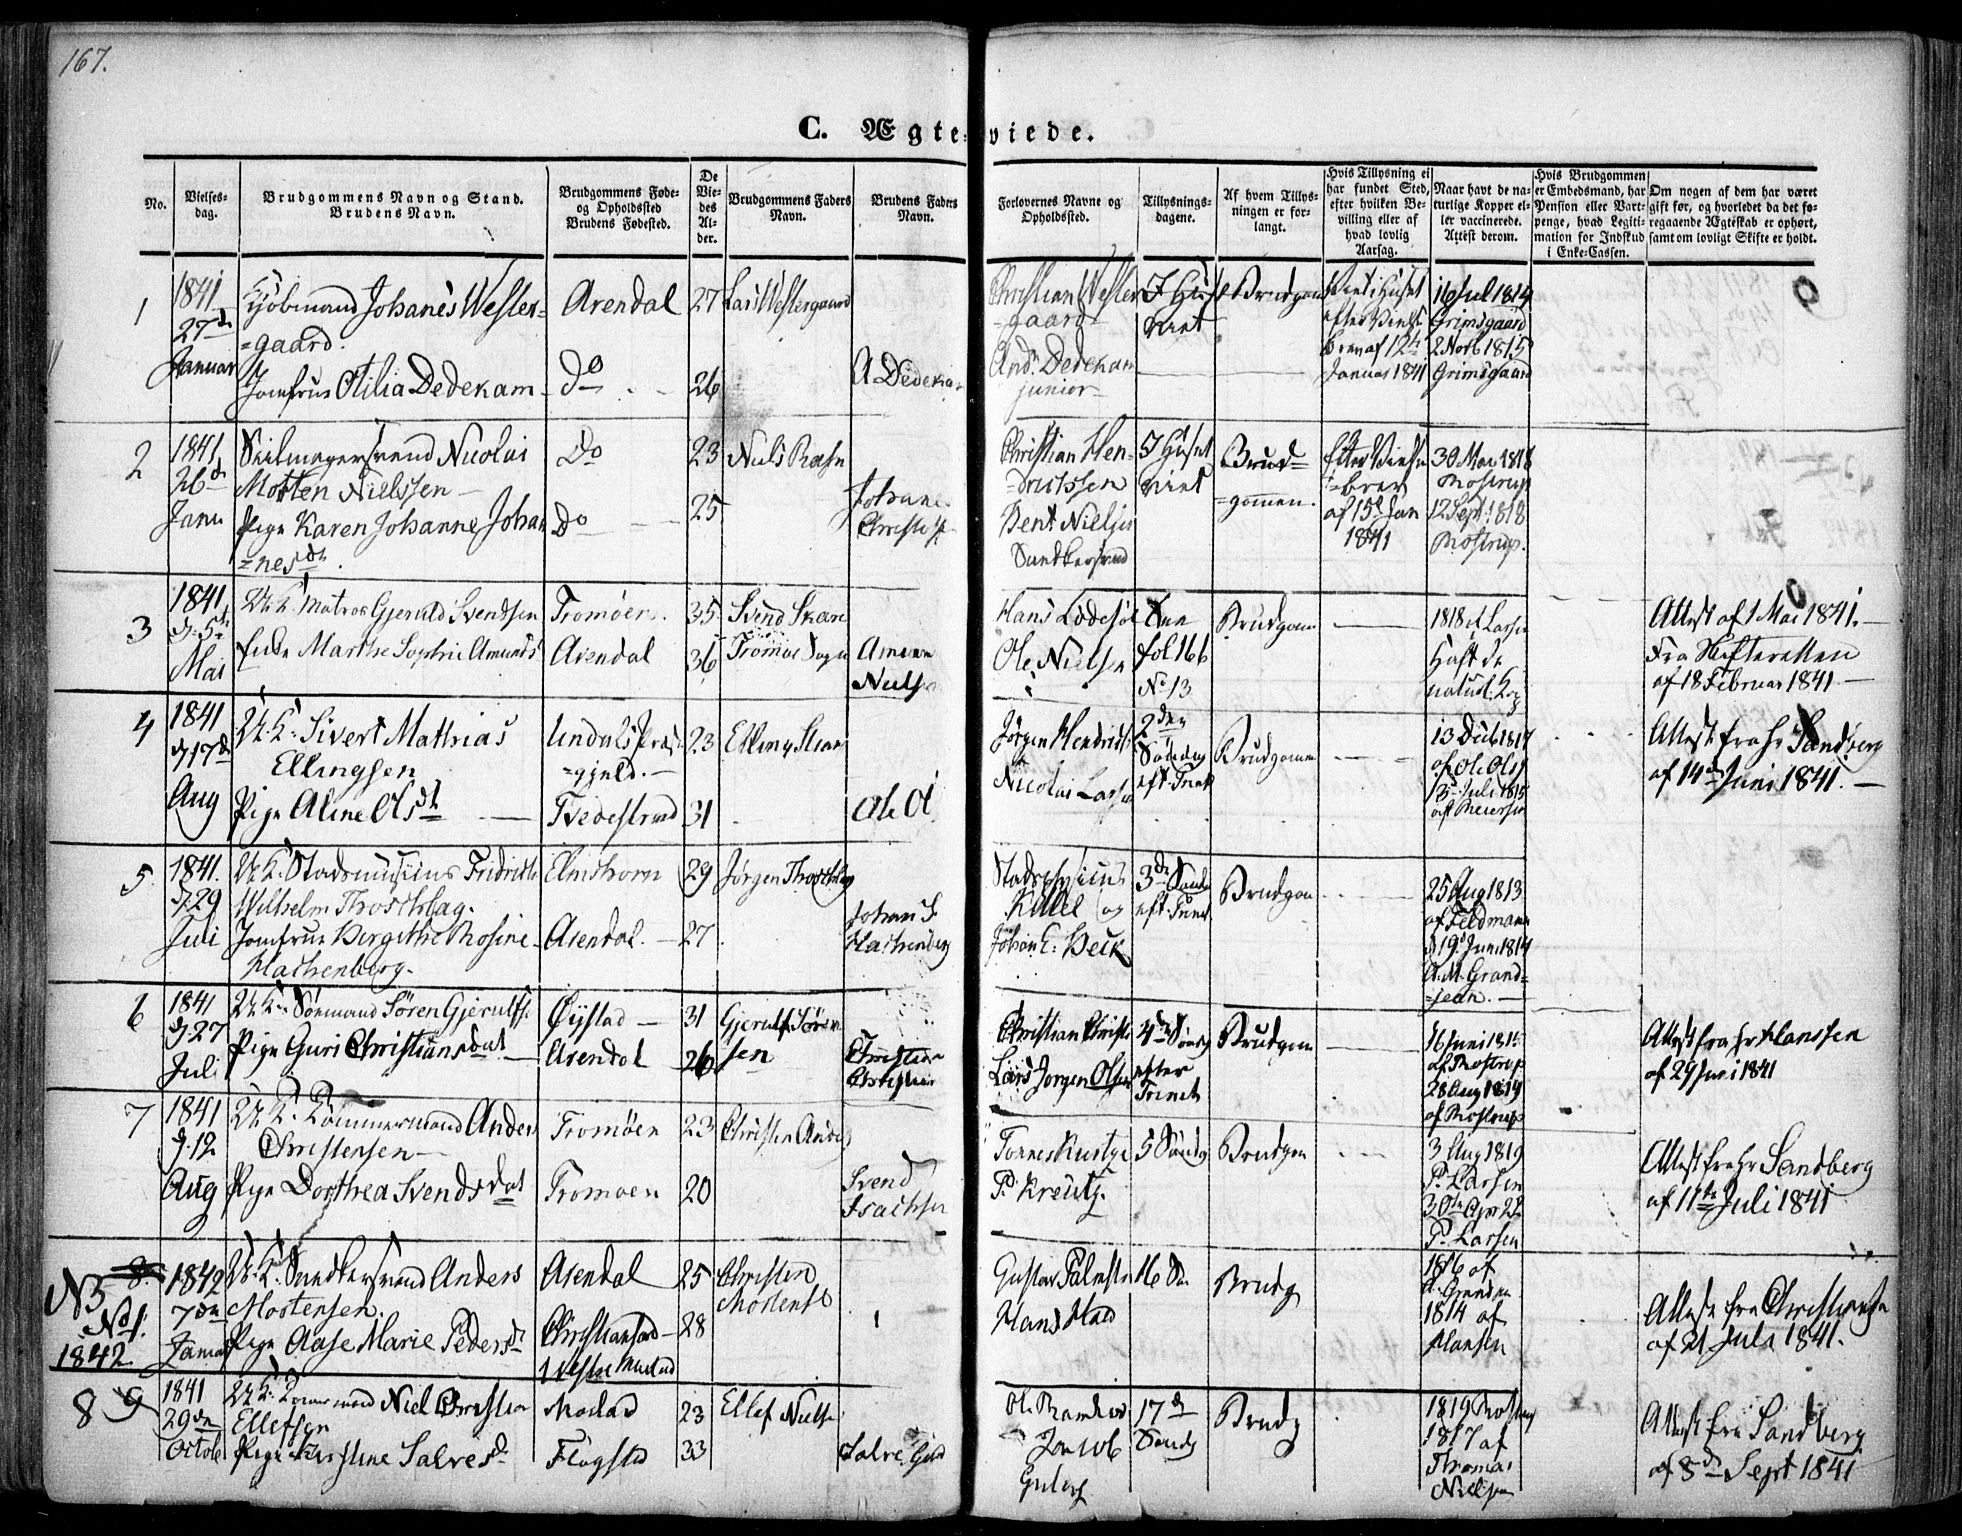 167.
C. Ægteviede.
No.
Vielses-
dag.
Brudgommens Navn og Stand.
Brudens Navn.
Brudgommens Føde-
og Opholdssted
Brudens Fødested.
De
Vie-
des
Al-
der.
Brudgommens Faders
Navn.
Brudens Faders
Navn.
Forlovernes Navne og
Opholdssted.
Tillysnings-
dagene.
Af hvem Tillys-
ningen er for-
langt.
Hvis Tillysning ei
har fundet Sted,
efter hvilken Be-
villing eller af
hvad lovlig
Aarsag.
Naar havt de na-
turlige Kopper el-
ler vaccinerede.
Attest derom.
Hvis Brudgommen
er Embedsmand, har
Pension eller Vart-
penge, hvad Legiti-
mation for Indskud
i Enke-Cassen.
Om nogen af dem har været
gift før, og hvorledet da det fo-
regaaende Ægteskab er ophørt,
samt om lovligt Skifte er holdt.
1
1841
27de
Januar
Kjøbmand Johanes Wester-
=gaard.
Jomfrue Otilia Dedekam
Arendal
Do
27
26
Lars Westergaard
A Dedekam
Christian Wester
=gaard
And. Dedekam
junior
I Huset
viet
Brudgom
Viet i Huset
efter Vielse
brev af 12te
Januar 1841
16 Jul 1814
Grimsgaard
2 Novb 1815
Grimsgaard
2
1841
26d
Janu
Seilmagersvend Nicolai
Morten Nielssen
Pige Karen Johanne Johan
=nesdt.
Do
Do
23
25
Niels Rasm
Johane
Christian Hen-
=drickssen
Bent Nielsen
I Huset
viet
Brud=
=gommen.
Efter Vielse
=brev
af 15d Jan
1841
30 Mai 1818
Møstrup
12 Sept. 1818
Møstrup.
3
1841
d. 5te
Mai
U. K. Matros Gjeruld Svendsen
Enke Marthe Sophie Amunds
Tromøen.
Arendal
35
36
Svend Skare
Tromøe Sogn
Amun
Nielsen
Hans Lødesøl
Ole Nielsen
fol 166
No 13
Brudgom
1818 af Larsen
Haft de
naturl. Kop
Attest af 1 Mai 1841.
Fra Skifteretten
af 18 Februar 1841.
4
1841
d 17d
Aug
U. K. Sivert Mathias
Ellingsen
Pige Aline Olsdt
Undals Præst
=gjeld.
Tvedestrand
23
31
Elling
Ole Ol
Jørgen Hendrichs
Nicolai Larsen
2den
Søndag
eft. Trint
Brudgomm
13 Decb 1817
af Ole Olss
13 Juli 1815
Attest fra Hr Sandberg
af 14de Juni 1841.
5.
1841.
d 29
Juli
U. K. Stadsmusicus Fridrich
Wilhelm Throschlag.
Jomfrue Birgithe Rosine
Hachenberg.
Elmshorn
Arendal.
29
27
Jørgen Throschlag
Johan S.
Hachenberg
Kittel og
Johan C. Beck
3de Sønda
eft. Trint.
Brudgom
25 Aug 1813
af Feldmann
d 19d Juni 1814
A. M. Grand-
=jean.
6
1841
d 27
Juli
U. K. Sømand Søren Gjerulfs.
Pige Guri Christiansdat
Øiestad
Arendal
31
26
Gjerulf Søren
sen
Christian
Christian
Christian Christi
Lars Jørgen Olsen
4de Sønd
efter
Trinit
Brudgom
16 Juni 1815
af Møstrup
28 Aug 1819
af Møstrup
Attest fra Hr Hanssen
af 29 Juni 1841
7
1841
d. 12
Aug
U. K. Tømmermand Anders
Christensen
Pige Dorthea Svendsdat
Tromøen
Tromøen
23
20
Christen Anders
Svend
Isachsen
Tønnes
P. Kreutz.
5 Søndg
Brudgom
3 Aug 1819
P. Larsen
30te Apr 22
P. Larsen
Attest fra Hr Sandberg
af 11te Juli 1841
8.
1842
1842
7de
Janua
U. K. Anders
Mortensen.
Pige Aase Marie Pedersdt
Arendal
Christiansand
25
28
Christen
Mortens
Gustav Palmstr
Hans
16 Sø.
Brudg
1816 af
A. Grandjen
1814 af
Hansen
Attest fra Christiansen
af 21 Juli 1841.
8
9
1841
29de
Octob
U. K. Tømmermand Niel Christian
Ellefsen
Pige Kirstine Salvesdt
Moland
Flagstad
23
33
Ellef Niels
Salve
Jacob
17d
Søndg
Brudg
1819
1817 af
Thomas
Nielsen
Attest fra Sandberg
af 8de Sept 1841